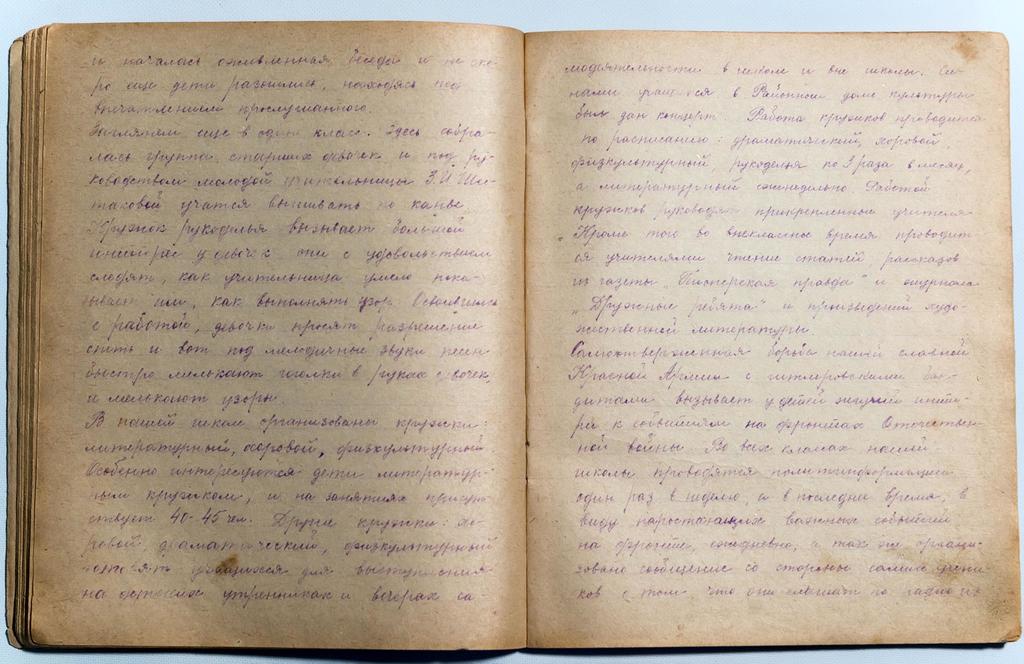 и началась оживленная беседа и не ско-
ро еще дети разошлись, находясь под
впечатлением прослушанного.
Заглянем еще в один класс. Здесь собра-
лась группа старших девочек и под ру-
ководством молодой учительницы З.И Шос-
таковой учатся вышивать по канве.
Кружок рукоделья вызывает большой
интерес у девочек они с удовольствием
следят, как учительница умело пока-
зывает им, как выполнять узор. Освоившись
с работой, девочки просят разрешение
спеть и вот под мелодичные звуки песен
быстро мелькают иголки в руках девочек,
и мелькают узоры.
В нашей школе организованы кружки:
литературный, хоровой, физкультурный
Особенно интересуются дети литератур-
ным кружком, и на занятиях присут-
ствует 40-45 чел. Другие кружки: хо-
ровой, драматический, физкультурный
готовят учащихся для выступления
на детских утренниках и вечерах са-
модеятельности в школе и вне школы. Си-
лами учащихся в Районном доме культуры
был дан концерт. Работа кружков проводится
по расписанию: драматический, хоровой,
физкультурный, рукоделья по 3 раза в месяц,
а литературный еженедельно. Работой
кружков руководят прикрепленные учителя
Кроме того во внеклассное время проводит-
ся учителями чтение статей рассказов
из газеты „Пионерская правда" и журнала
„Дружные ребята" и произведений худо-
жественной литературы.
Самоотверженная борьба нашей славной
Красной Армии с гитлеровскими бан-
дитами вызывает у детей живший инте-
рес к событиям на фронтах Отечествен-
ной войны. Во всех классах нашей
школы проводятся политинформации
один раз в неделю, а в последнее время, в
виду наростающих важных событий
на фронте, ежедневно, а так же органи-
зовано сообщение со стороны самих учени-
ков о том что они слышат по радио из